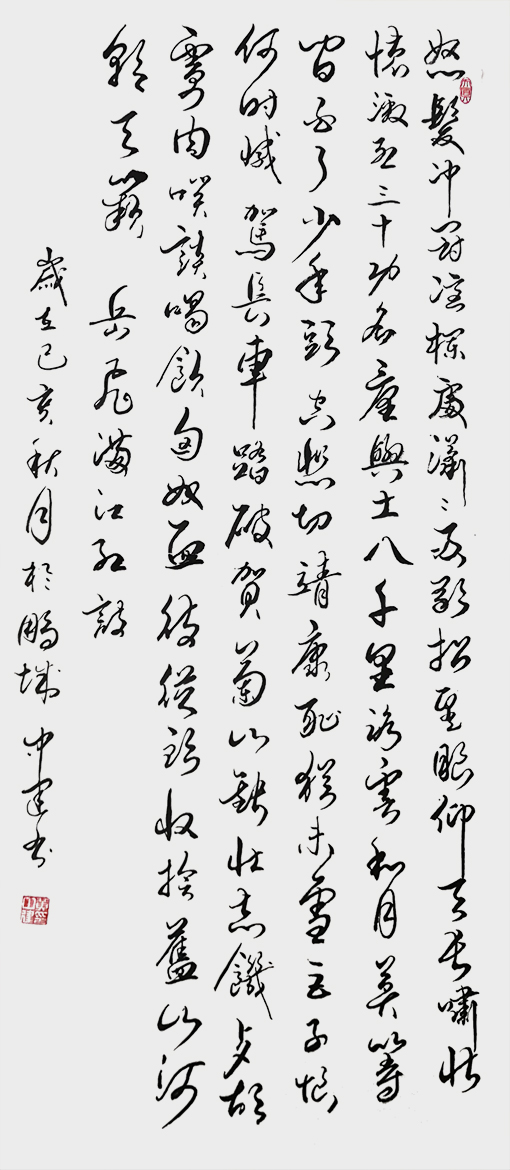 怒髮冲冠憑欄處瀟〻雨歇抬望眼仰天長嘯壯
懷激烈三十功名塵與土八千里路雲和月莫等
閒白了少年頭空悲切靖康恥猶未雪臣子恨
何時滅駕長車踏破賀蘭山缺壯志饑餐胡
虜肉咲談渴飲匈奴血待從頭收拾舊山河
朝天闕 岳飛滿江紅詞
歲在己亥秋月於鵬城 中建書